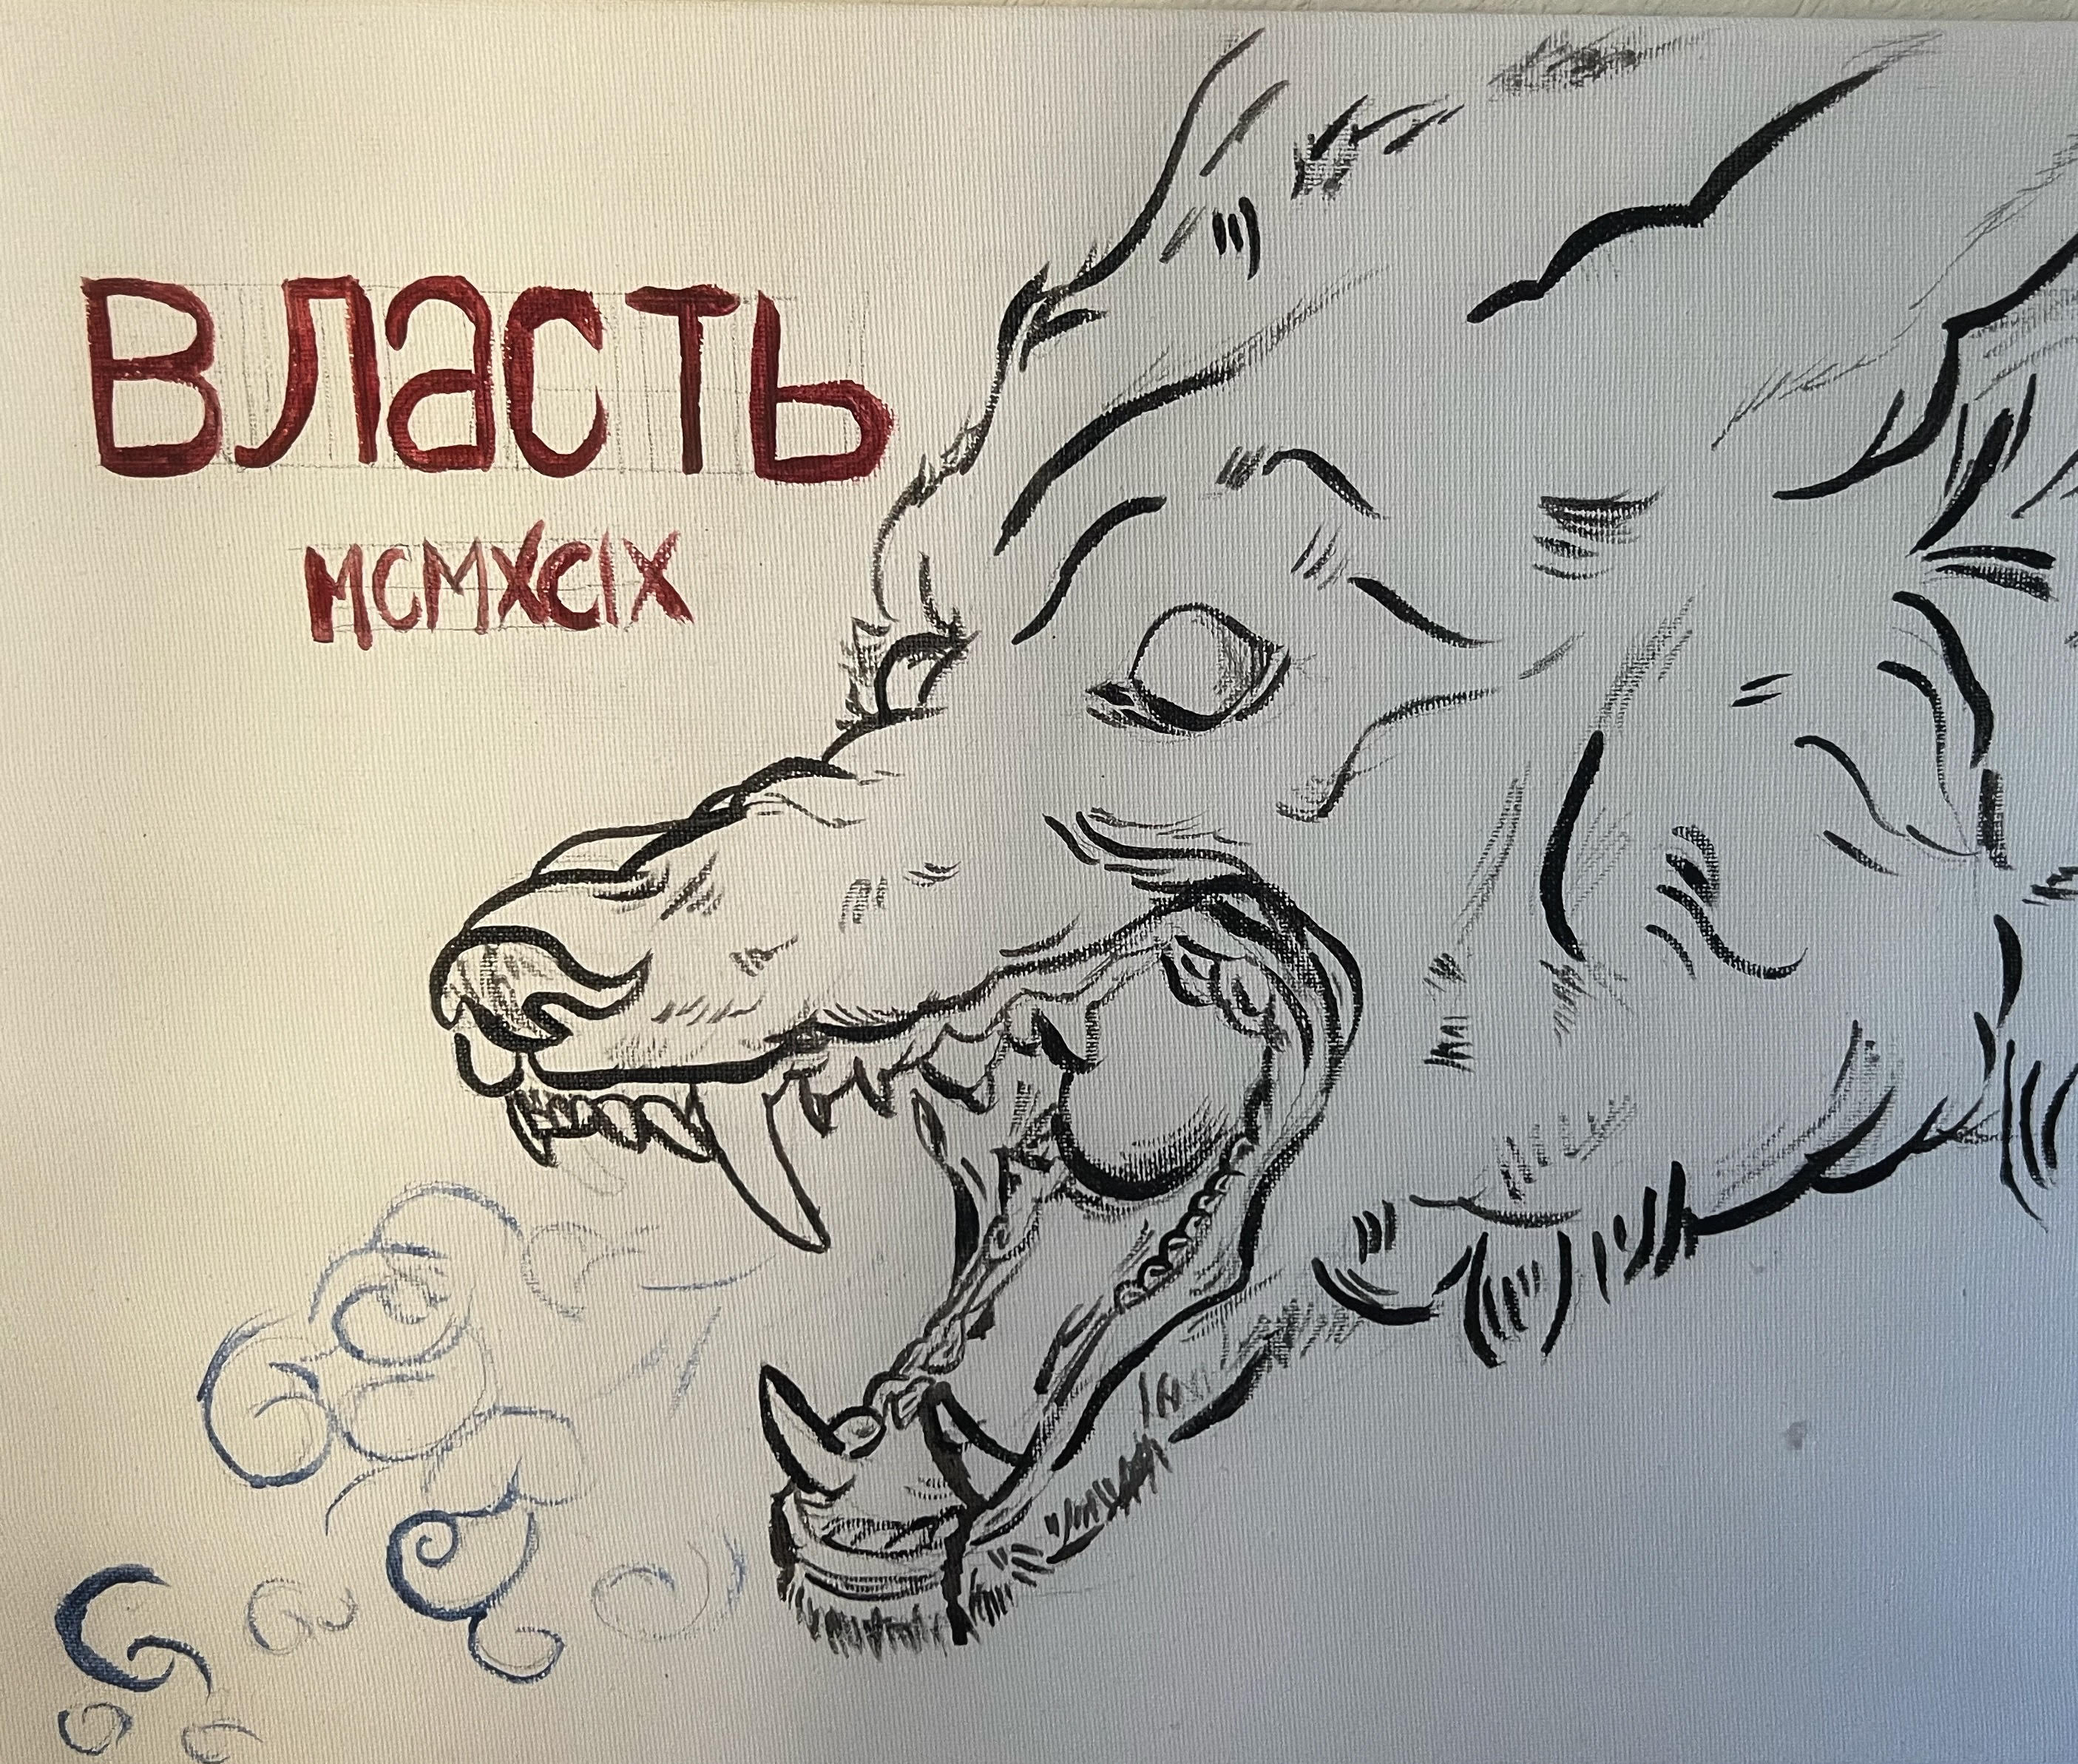 власть
MCMXCIX